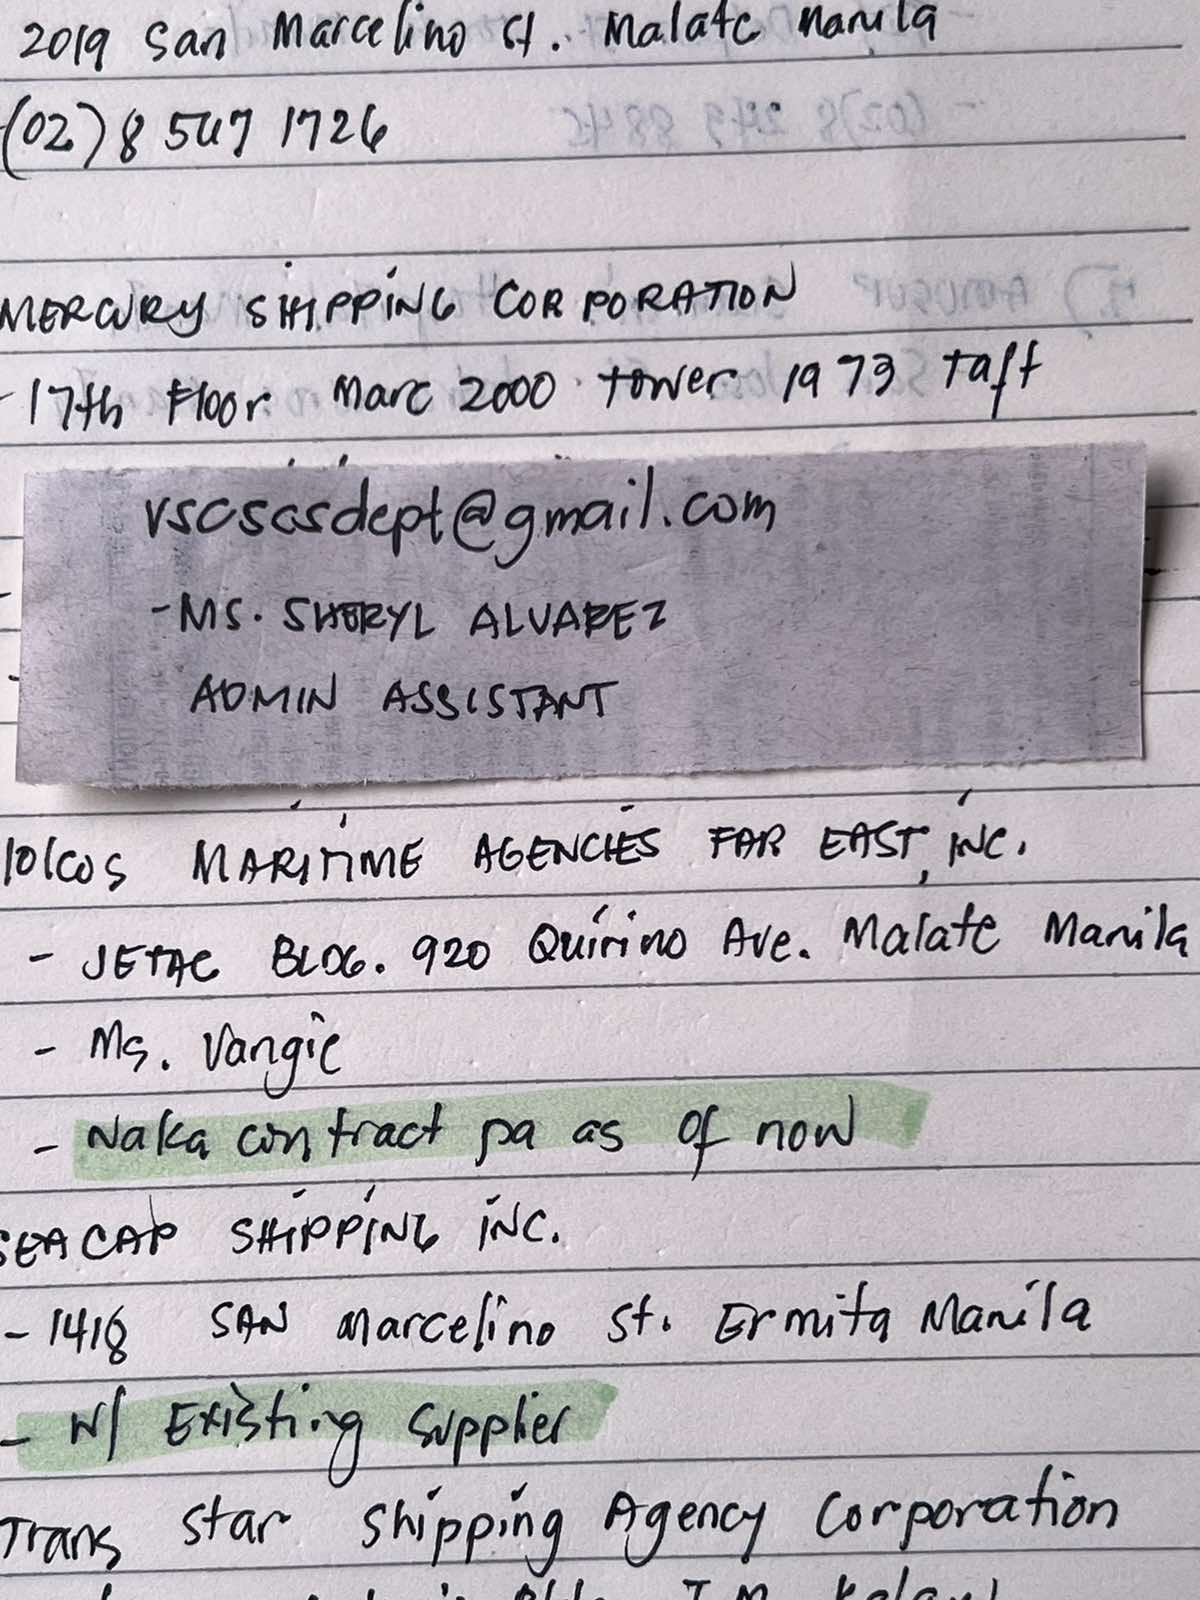 2019 San Marcelino St. Malate Manila
(02) 8 567 1726
MERCURY SHIPPING CORPORATION
- 17th Floor Marc 2000 tower 1973 Taft
vscscsdept@gmail.com
- MS. SHERYL ALVAREZ
ADMIN ASSISTANT
MARITIME AGENCIES FAR EAST, INC.
- JETAC BLDG. 920 Quirino Ave. Malate Manila
- Ms. Vangie
- Naka contract pa as of now
SEACAP SHIPPING INC.
- 1418 SAN Marcelino St. Ermita Manila
- W/ Existing Supplier
Trans Star Shipping Agency Corporation